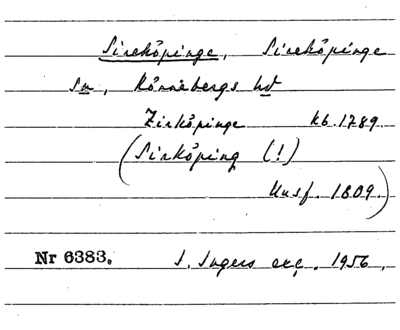 Sireköpinge, Sireköpinge
sn, Rönnebergs hd
Zirköpinge kb. 1789.
(Sirköping (!)
Husf. 1809.)
Nr 6383. I. Ingers exc. 1956.